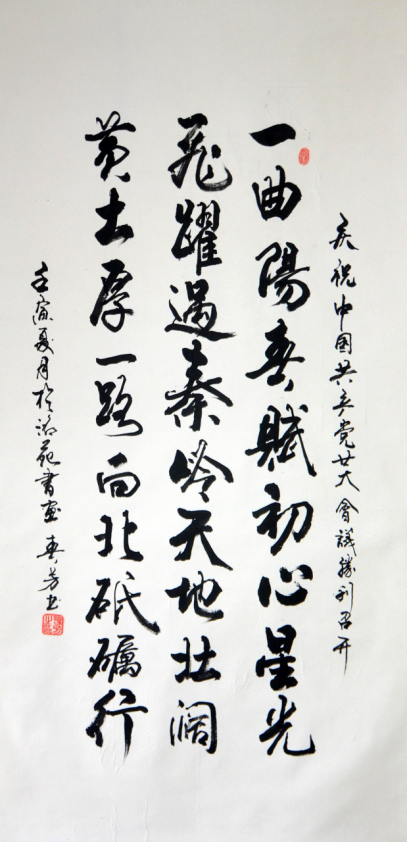 庆祝中国共产党廿大會議勝利召开
一曲陽春賦初心星光
飛躍過秦岭天地壮阔
黄土厚一路向北砥礪行
壬寅夏月於苑書畫春芳书